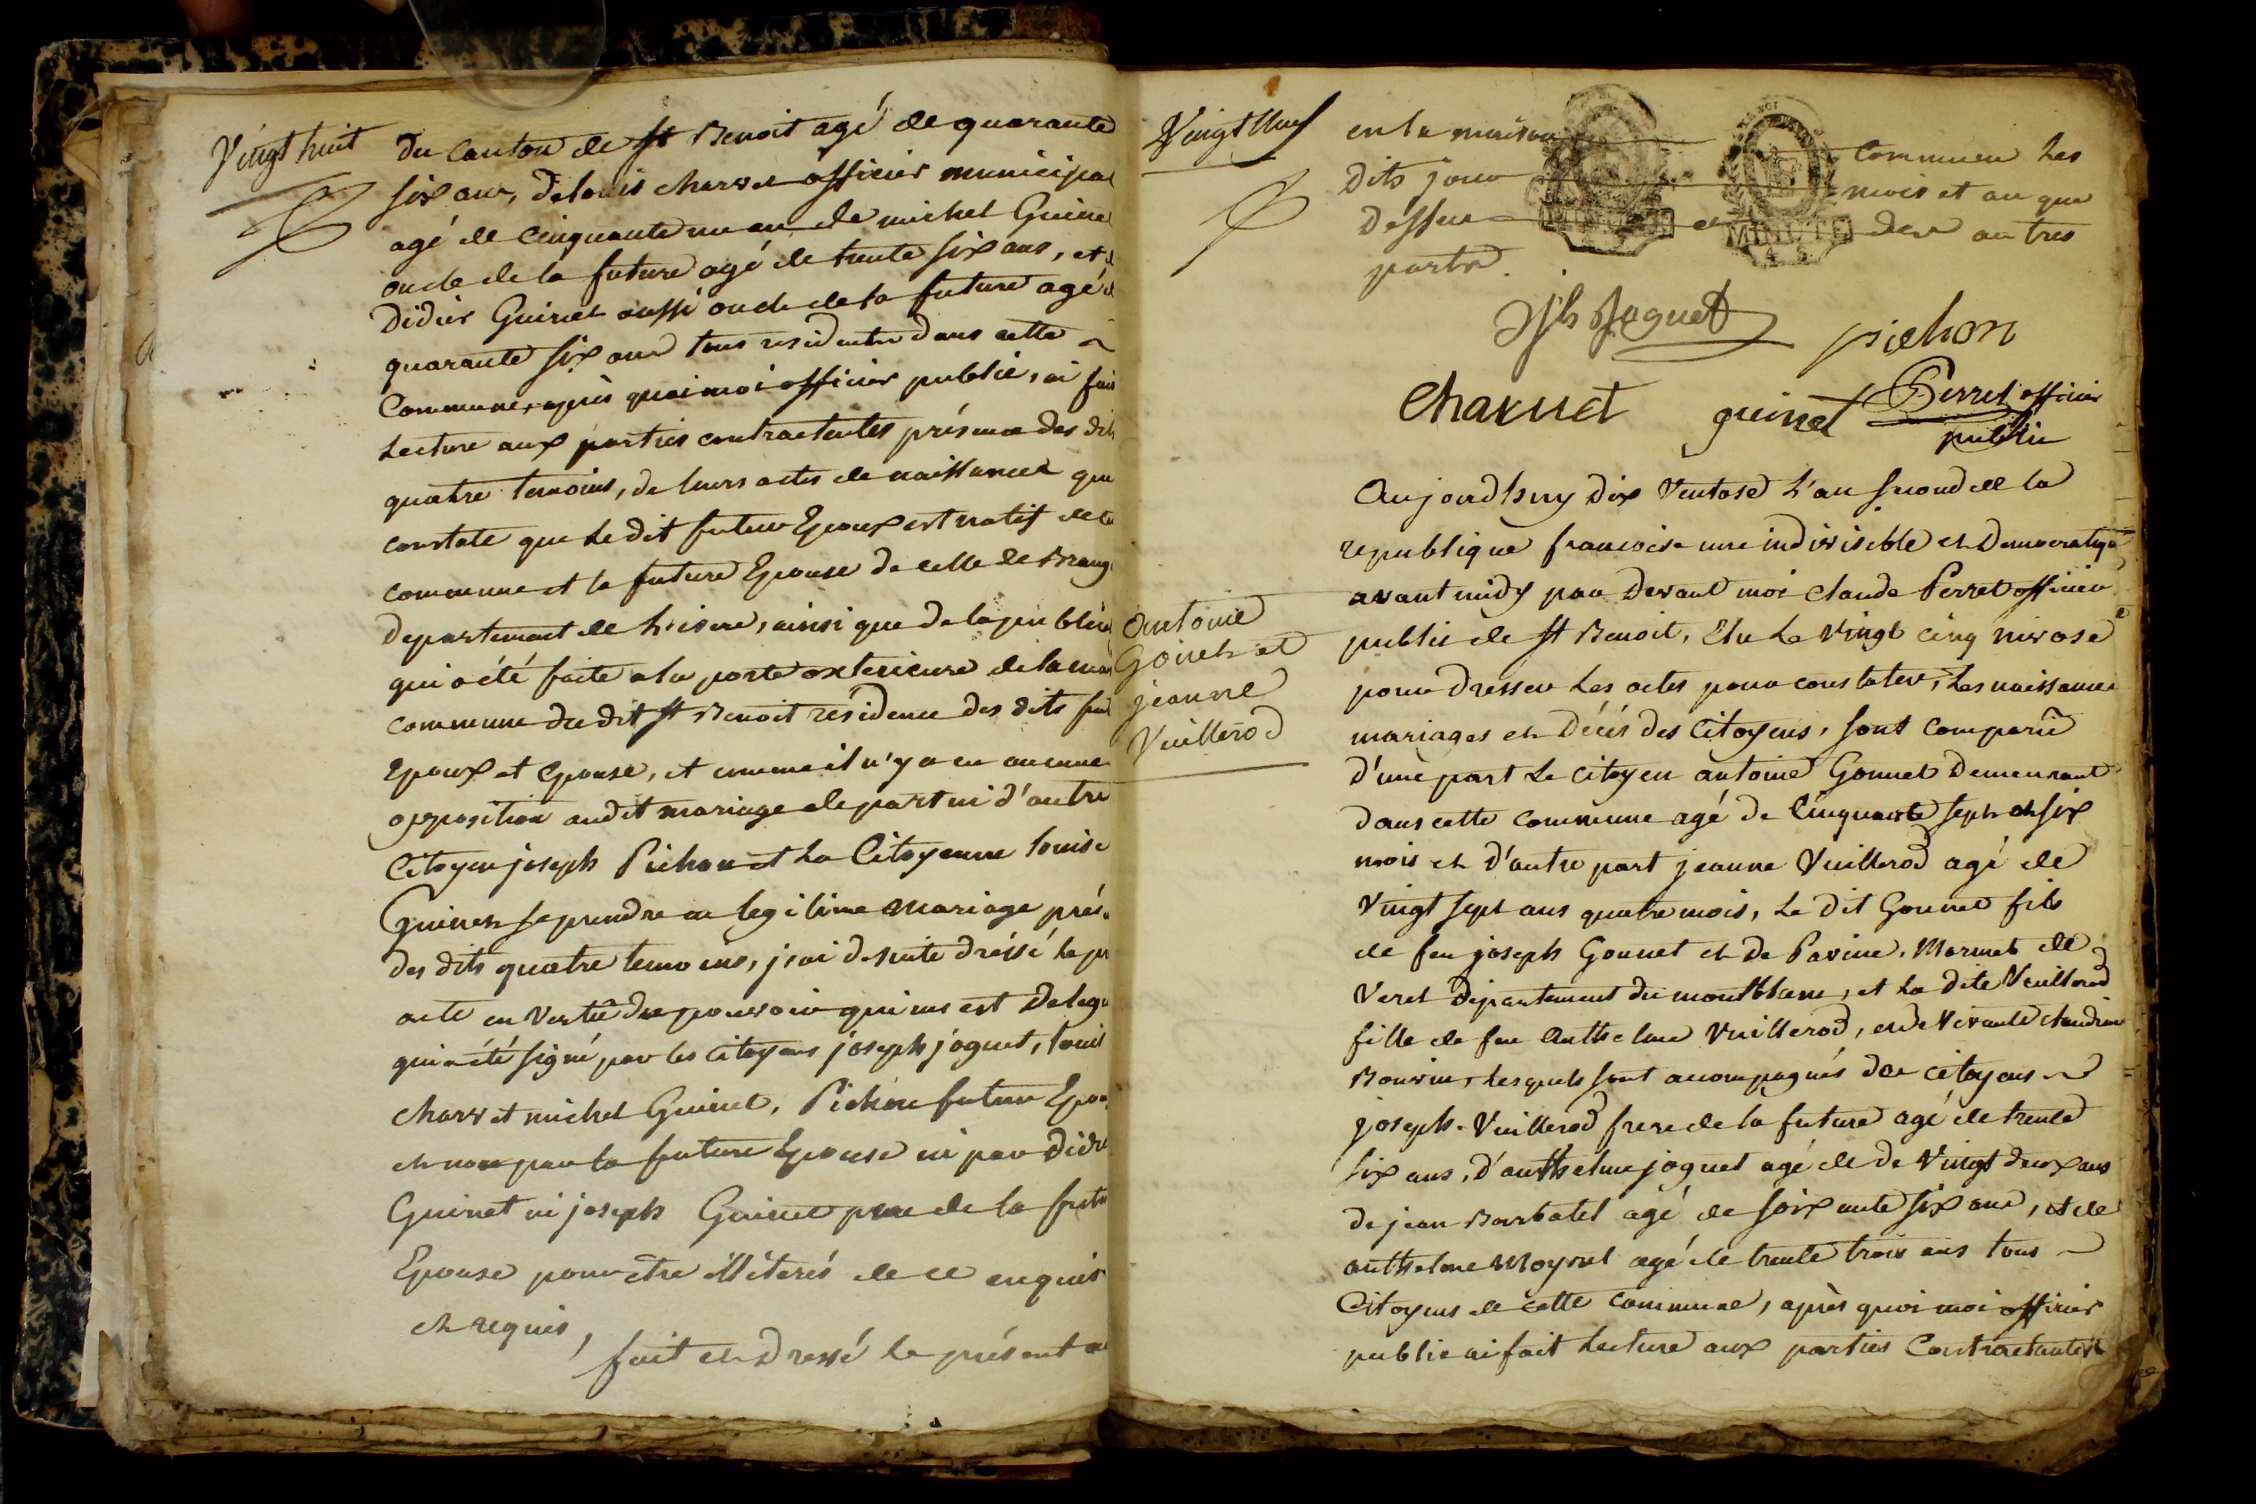 Vingt huit
du canton de st Benoit agé de quarante
six ans, de louis charvet officier municipal
agé de cinquante un an de michel Guinet
oncle de la future agé de trente six ans, et de
Didier Guinet aussi oncle de la future agé de
quarante six ans tous residents dans cette
Commune, après quoi moi officier public, ai fait
Lecture aux parties contractantes présence des dits
quatre temoins, de leurs actes de naissances qui
constate que le dit futur Epoux est natif de la
commune et la future Epouse de celle de Brang
departement de l'isere, ainsi que de la
qui a été faite a la porte exterieure de la
commune du dit st Benoit résidence des dits
Epoux et epouse, et comme il n'y a eu aucune
opposition au dit mariage de part ni d'autre
Citoyen joseph Pichon et la Citoyenne louise
Guinet se prendre en legitime mariage prés.
des dits quatre temoins, j'ai de suite dréssé le
acte en vertu du pouvoir qui m'est delegu
qui a été signé par les citoyens joseph joguet, louis
charvet michel Guinet, Pichon futur Epou
et non par la future Epouse ni par didi
Guinet ni joseph Guinet pere de la
Epouse pour etre illiterés de ce enquis
et requis,
fait et dressé le présent
Vingt Neuf
en la maison commune les
dits jour mois et an que
dessus et des autres
parts.
jph Joguet
pichon
Charvet guinet Perret officier
public
Antoine
Gonnet et
jeanne
Vuillerod
Aujourdhuy dix Ventose l'an second de la
republique francoise une indivisible et democratique
avant midy par devant moi claude Perret officier
public de st Benoit, élu le vingt cinq nivose
pour dresser les actes pour constater, les naissances
mariages et décés des Citoyens, sont comparu
d'une part le citoyen antoine Gonnet demeurant
dans cette commune agé de Cinquante sept et six
mois et d'autre part jeanne Vuillerod agé de
Vingt sept ans quatre mois, le dit Gonnet fils
de feu joseph Gonnet et de Pavine, Mermet de
Veret département du montblanc, et la dite Vuillerod
fille de feu Anthelme Vuillerod, et de Vivante claudine
Bouvier, lesquels sont accompagnés des citoyens
joseph Vuillerod frere de la future agé de trente
six ans, d'anthelme joguet agé de de Vingt deux ans
de jean Barbatel agé de soixante six ans, et de
anthelme Moyret agé de trente trois ans tous
Citoyens de cette commune, après quoi moi officier
public ai fait lecture aux parties Contractantes